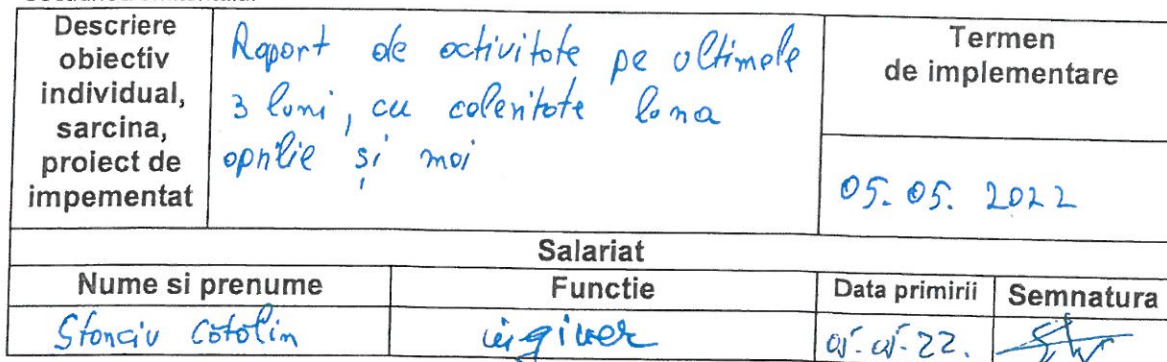 Descriere
obiectiv
individual,
sarcina,
proiect de
impementat
Raport de activitate pe ultimele
3 luni, cu celeritate luna
aprilie și mai
Termen
de implementare
05. 05. 2022
Salariat
Nume si prenume
Functie
Data primirii
Semnatura
Stanciu Catalin
inginer
05.05.22.